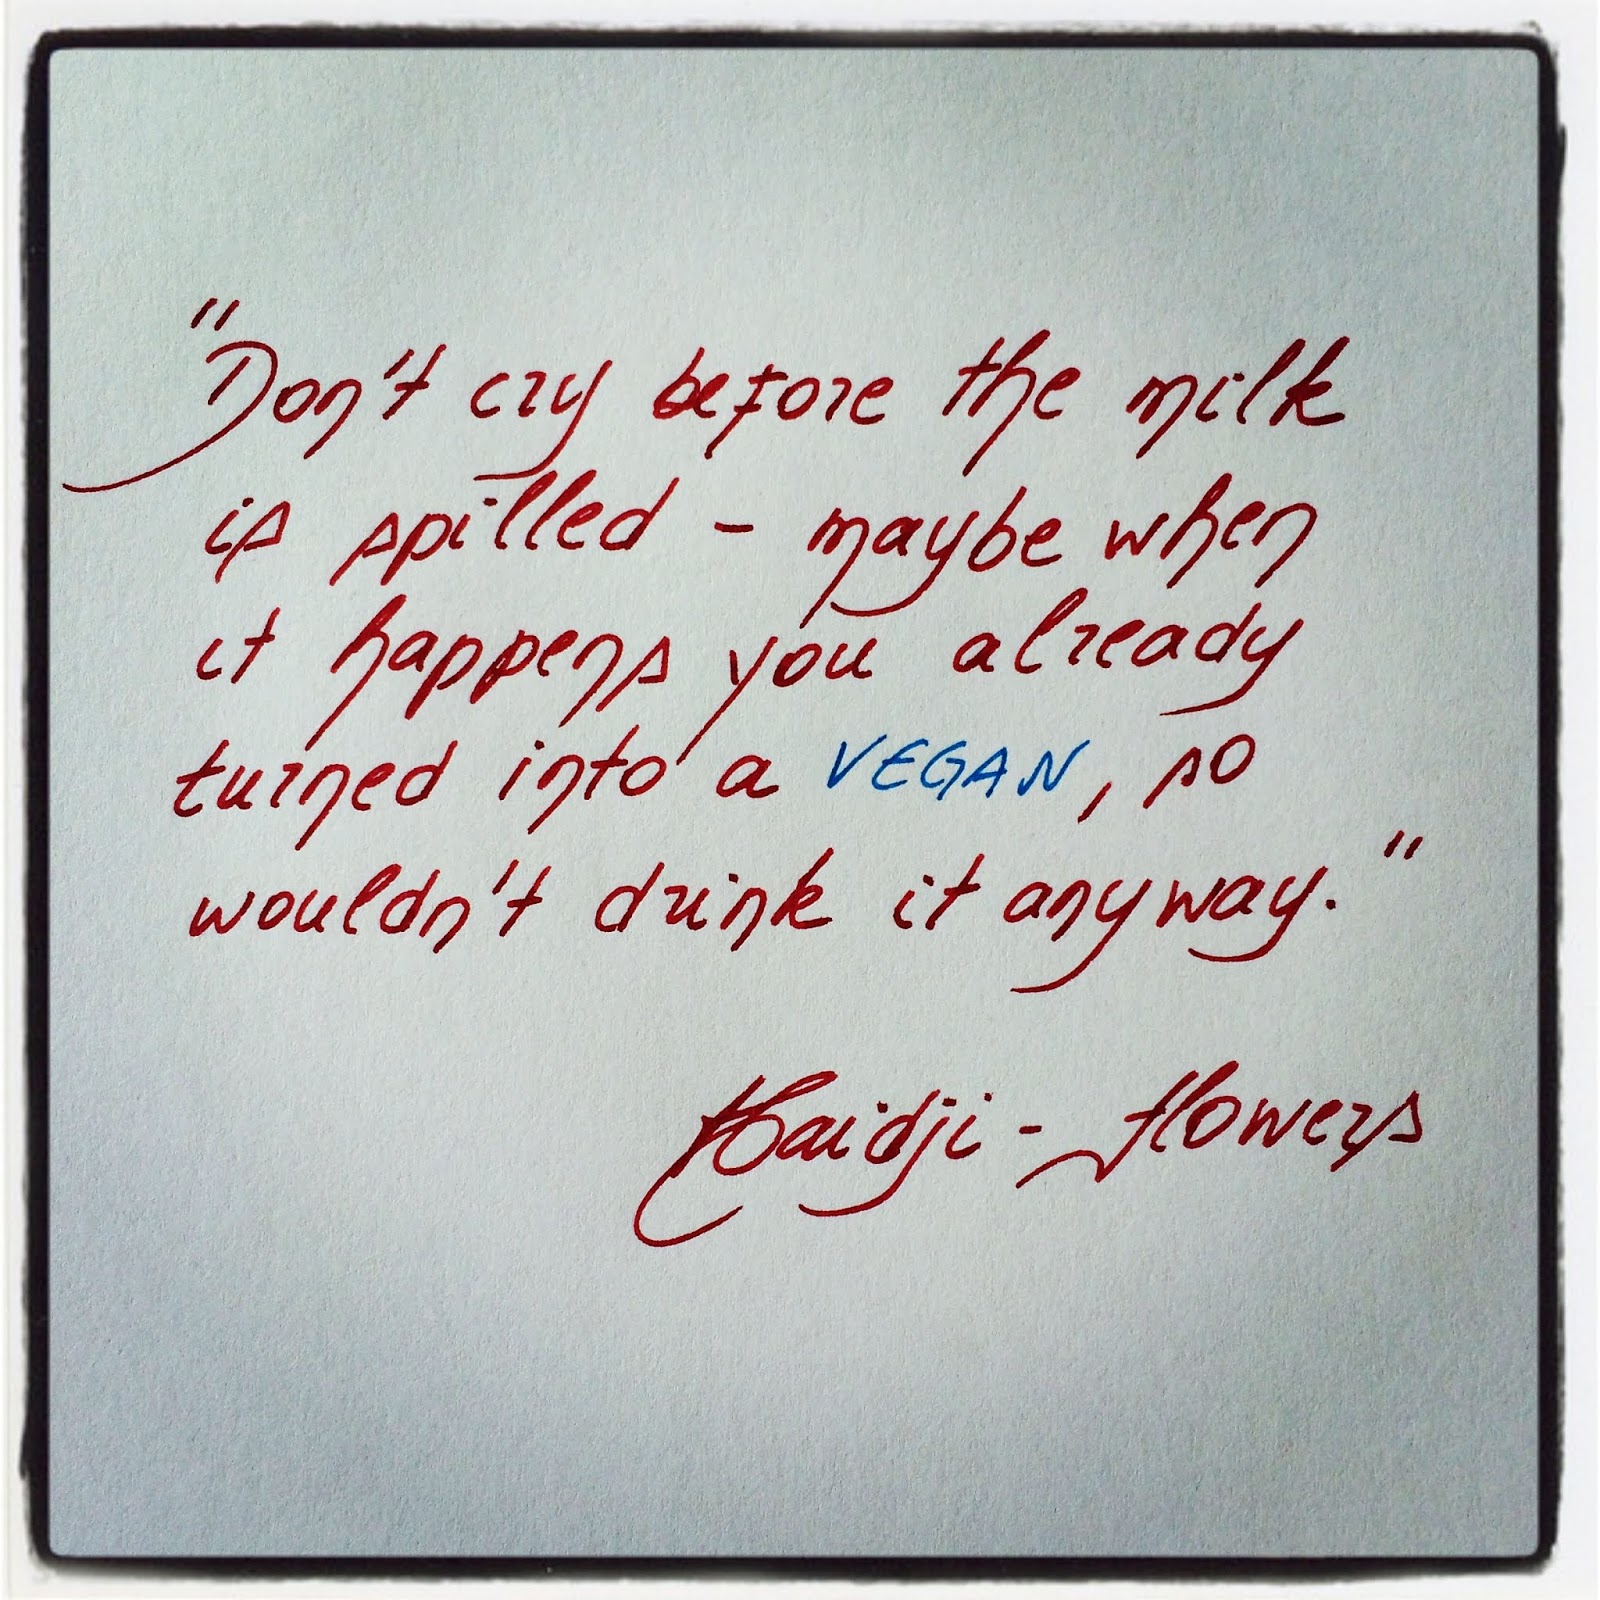 "Don't cry before the milk
is spilled - maybe when
it happens you already
turned into a VEGAN, so
wouldn't drink it anyway."
Haidji - flowers